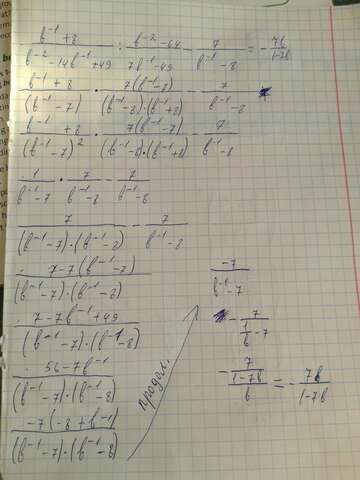 (b⁻¹+8)/(b⁻²-14b⁻¹+49) : (b⁻²-64)/(7b⁻¹-49) - 7/(b⁻¹-8) = -7b/(1-7b)
(b⁻¹+8)/(b⁻¹-7) · 7(b⁻¹-8)/((b⁻¹-8)·(b⁻¹+8)) - 7/(b⁻¹-8)
(b⁻¹+8)/(b⁻¹-7)² · 7(b⁻¹-7)/((b⁻¹-8)·(b⁻¹+8)) - 7/(b⁻¹-8)
1/(b⁻¹-7) · 7/(b⁻¹-8) - 7/(b⁻¹-8)
7/((b⁻¹-7)·(b⁻¹-8)) - 7/(b⁻¹-8)
7-7(b⁻¹-7)/((b⁻¹-7)·(b⁻¹-8))
7-7b⁻¹+49/((b⁻¹-7)·(b⁻¹-8))
56-7b⁻¹/((b⁻¹-7)·(b⁻¹-8))
-7(-8+b⁻¹)/((b⁻¹-7)·(b⁻¹-8))
продол.
-7/(b⁻¹-7)
-7/(1/b-7)
-7/((1-7b)/b) = -7b/(1-7b)